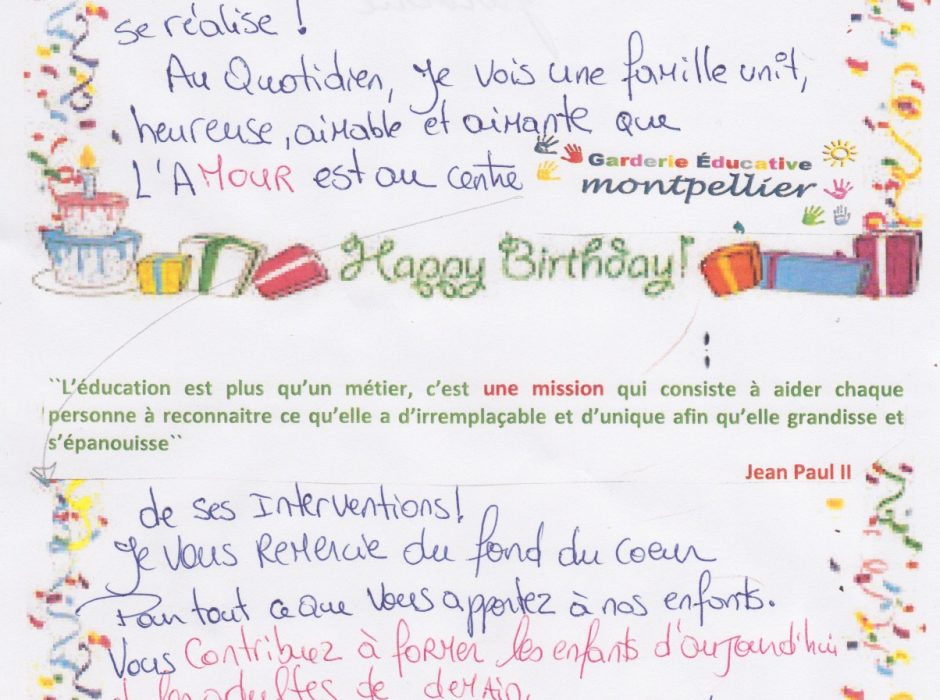 se réalise !
Au Quotidien, je vois une famille unit,
heureuse, aimable et aimante que
L'AMOUR est au centre
Garderie Éducative
montpellier
Happy Birthday!
``L'éducation est plus qu'un métier, c'est une mission qui consiste à aider chaque
personne à reconnaitre ce qu'elle a d'irremplaçable et d'unique afin qu'elle grandisse et
s'épanouisse``
Jean Paul II
de ses Interventions!
Je vous Remercie du fond du coeur
Pour tout ce que vous apportez à nos enfants.
Vous Contribuez à former les enfants d'aujourd'hui
les adultes de demain.